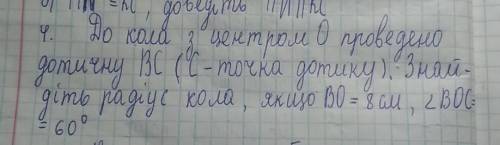 4. До кола з центром О проведено
дотичну ВС (С-точка дотику). Знай-
діть радіус кола, якщо ВО = 8 см, ∠ВОС=
= 60°